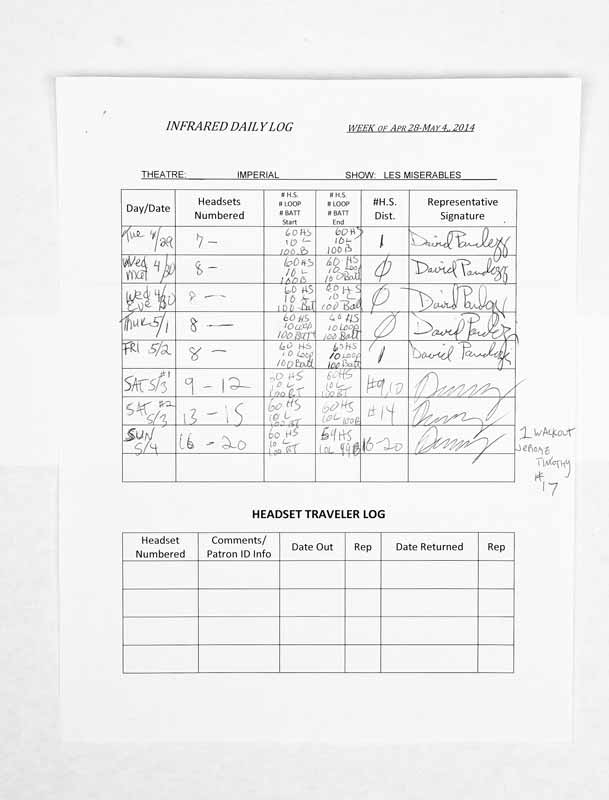 INFRARED DAILY LOG WEEK OF APR 28-MAY 4,, 2014
THEATRE: IMPERIAL SHOW: LES MISERABLES
Day/Date
Headsets
Numbered
# H.S.
# LOOP
# BATT
Start
# H.S.
# LOOP
# BATT
End
#H.S.
Dist.
Representative
Signature
Tue 4/29
7 –
60 HS
10 L
100 B
60 HS
10 L
100 B
1
Wed 4/30
mat
8 –
60 HS
10 L
100 B
60 HS
10 Loop
100 Batt
Ø
Wed 4/30
Eve
8 –
60 HS
10 L
100 Bat
60 HS
10 L
100 Batt
Ø
Thur 5/1
8 –
60 HS
10 Loop
100 Batt
60 HS
10 Loop
100 Batt
Ø
FRI 5/2
8 –
60 HS
10 Loop
100 Batt
60 HS
10 Loop
100 Batt
1
David Pandozz
SAT #1
5/3
9 – 12
HS
10 L
100 BT
60 HS
10 L
100 BT
#9,10
SAT #2
5/3
13 – 15
60 HS
10 L
60 HS
10L 100 B
#14
SUN
5/4
16 – 20
60 HS
10 L
100 BT
59 HS
10L 99 B
16-20
1 WALKOUT
JEROME
TIMOTHY
#
17
HEADSET TRAVELER LOG
Headset
Numbered
Comments/
Patron ID Info
Date Out
Rep
Date Returned
Rep